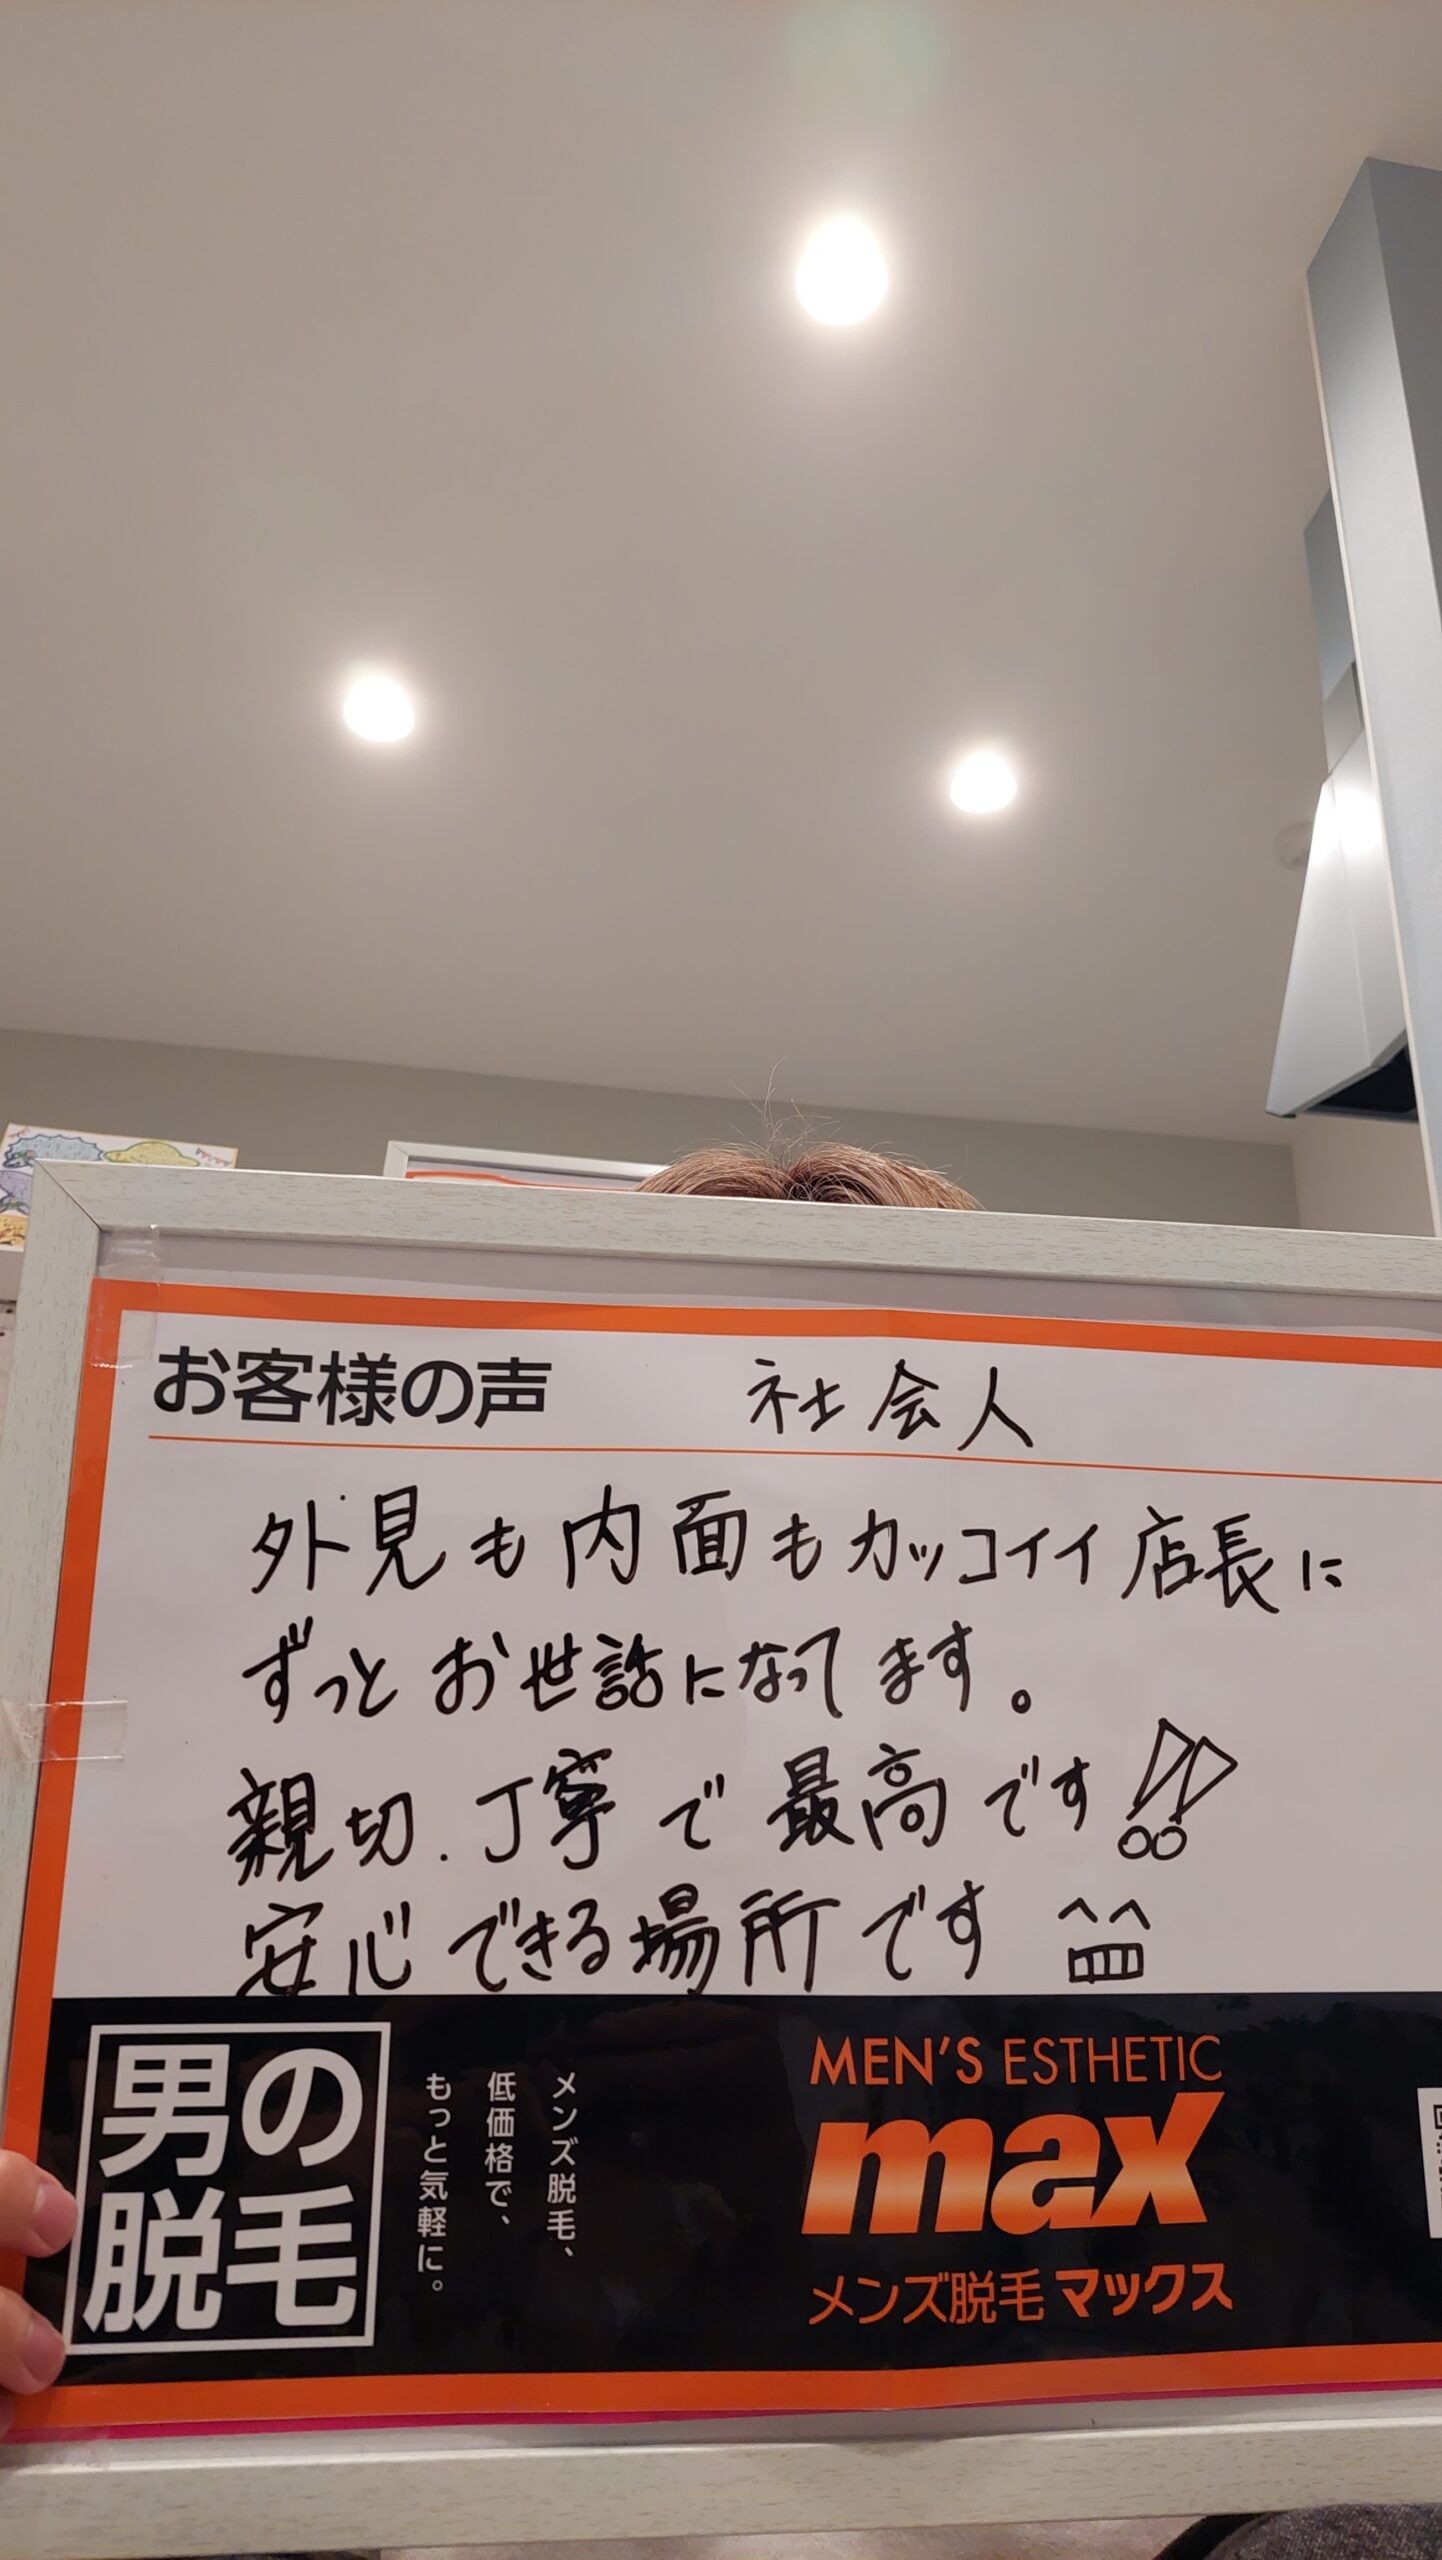 お客様の声 社会人
外見も内面もカッコイイ店長に
ずっとお世話になってます。
親切.丁寧で最高です!!
安心できる場所です ^^
男の
脱毛
メンズ脱毛、
低価格で、
もっと気軽に。
MEN'S ESTHETIC
max
メンズ脱毛マックス